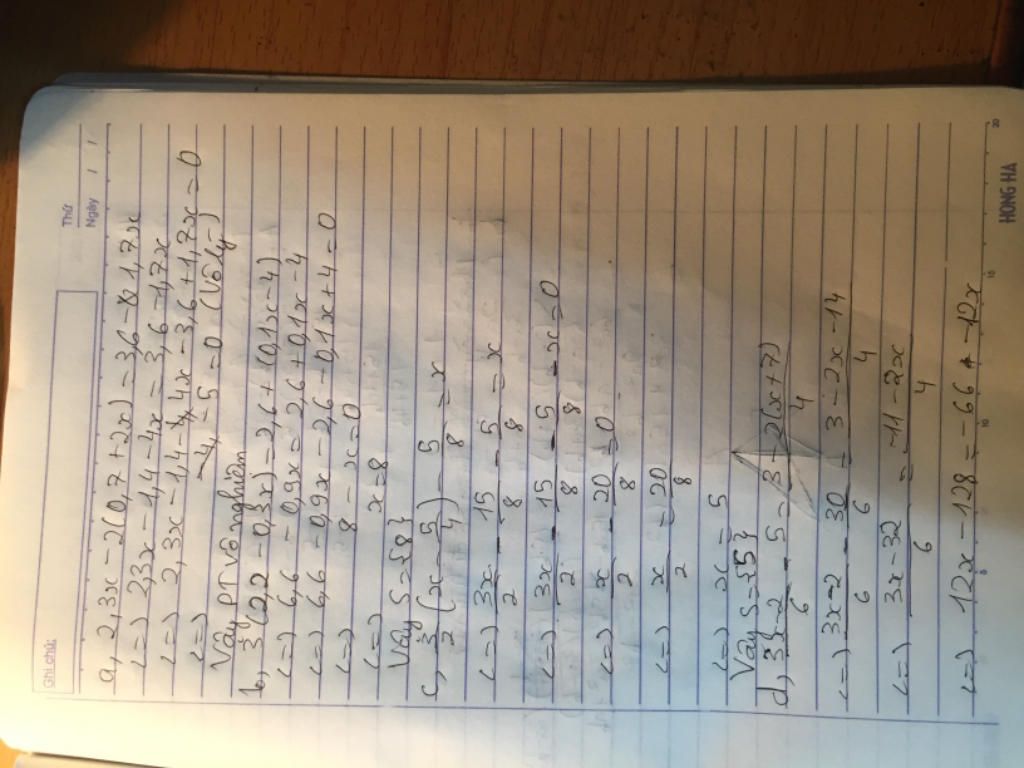 Ghi chú:
Thứ
Ngày
a, 2,3x - 2(0,7 + 2x) = 3,6 - 1,7x
<=> 2,3x - 1,4 - 4x = 3,6 - 1,7x
<=> 2,3x - 1,4 - 4x - 3,6 + 1,7x = 0
<=> -5 = 0 (vô lý)
Vậy pt vô nghiệm
b, 3(2,2 - 0,3x) = 2,6 + (0,1x - 4)
<=> 6,6 - 0,9x = 2,6 + 0,1x - 4
<=> 6,6 - 0,9x - 2,6 - 0,1x + 4 = 0
<=> 8 - x = 0
<=> x = 8
Vậy S = {8}
c, 3/2 (x - 5/4) - 5/8 = x
<=> 3x/2 - 15/8 - 5/8 = x
<=> 3x/2 - 15/8 - 5/8 - x = 0
<=> x/2 - 20/8 = 0
<=> x/2 = 20/8
<=> x = 5
Vậy S = {5}
d, 3x-2/6 - 5 = 3 - 2(x + 7)/4
<=> 3x-2/6 - 30/6 = 3 - 2x - 14/4
<=> 3x - 32/6 = -11 - 2x/4
<=> 12x - 128 = -66 - 12x
HONG HA